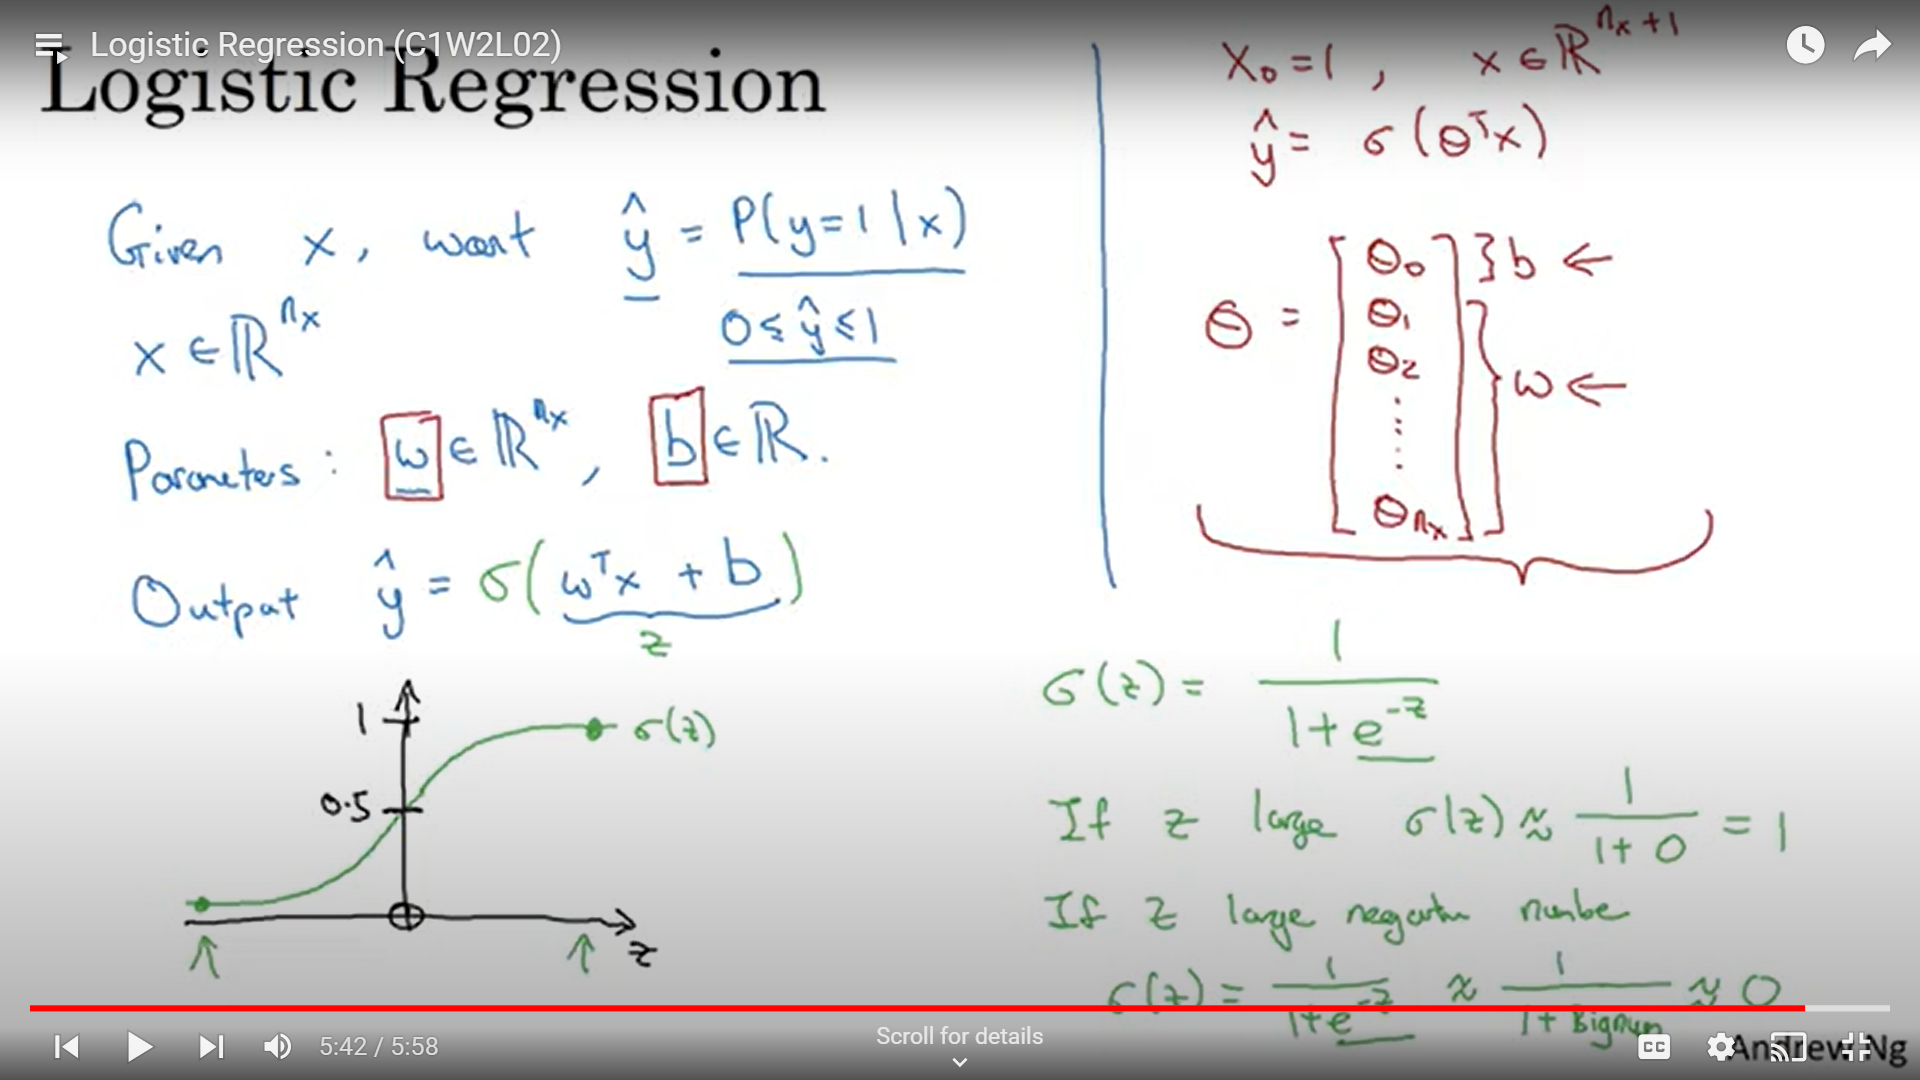 Logistic Regression (C1W2L02)
Logistic Regression
Given x, want ŷ = P(y=1|x)
0≤ŷ≤1
x∈ℝⁿˣ
Parameters: w∈ℝⁿˣ, b∈ℝ.
Output ŷ = σ(wᵀx + b)
z
1
σ(z)
0.5
z
X₀=1, x∈ℝⁿˣ⁺¹
ŷ = σ(θᵀx)
θ = [θ₀ θ₁ θ₂ ⋮ θₙₓ]
}b ←
}w ←
σ(z) = 1/(1+e⁻ᶻ)
If z large σ(z) ≈ 1/(1+0) = 1
If z large negative number
σ(z) = 1/(1+e⁻ᶻ) ≈ 1/(1+Bignum) ≈ 0
5:42 / 5:58
Scroll for details
CC
Andrew Ng